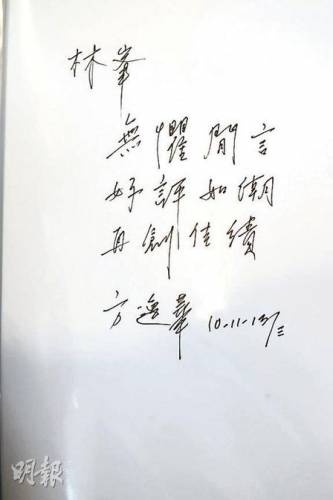 林峯
無懼閒言
好評如潮
再創佳績
方逸華 10-11-13/三
明報